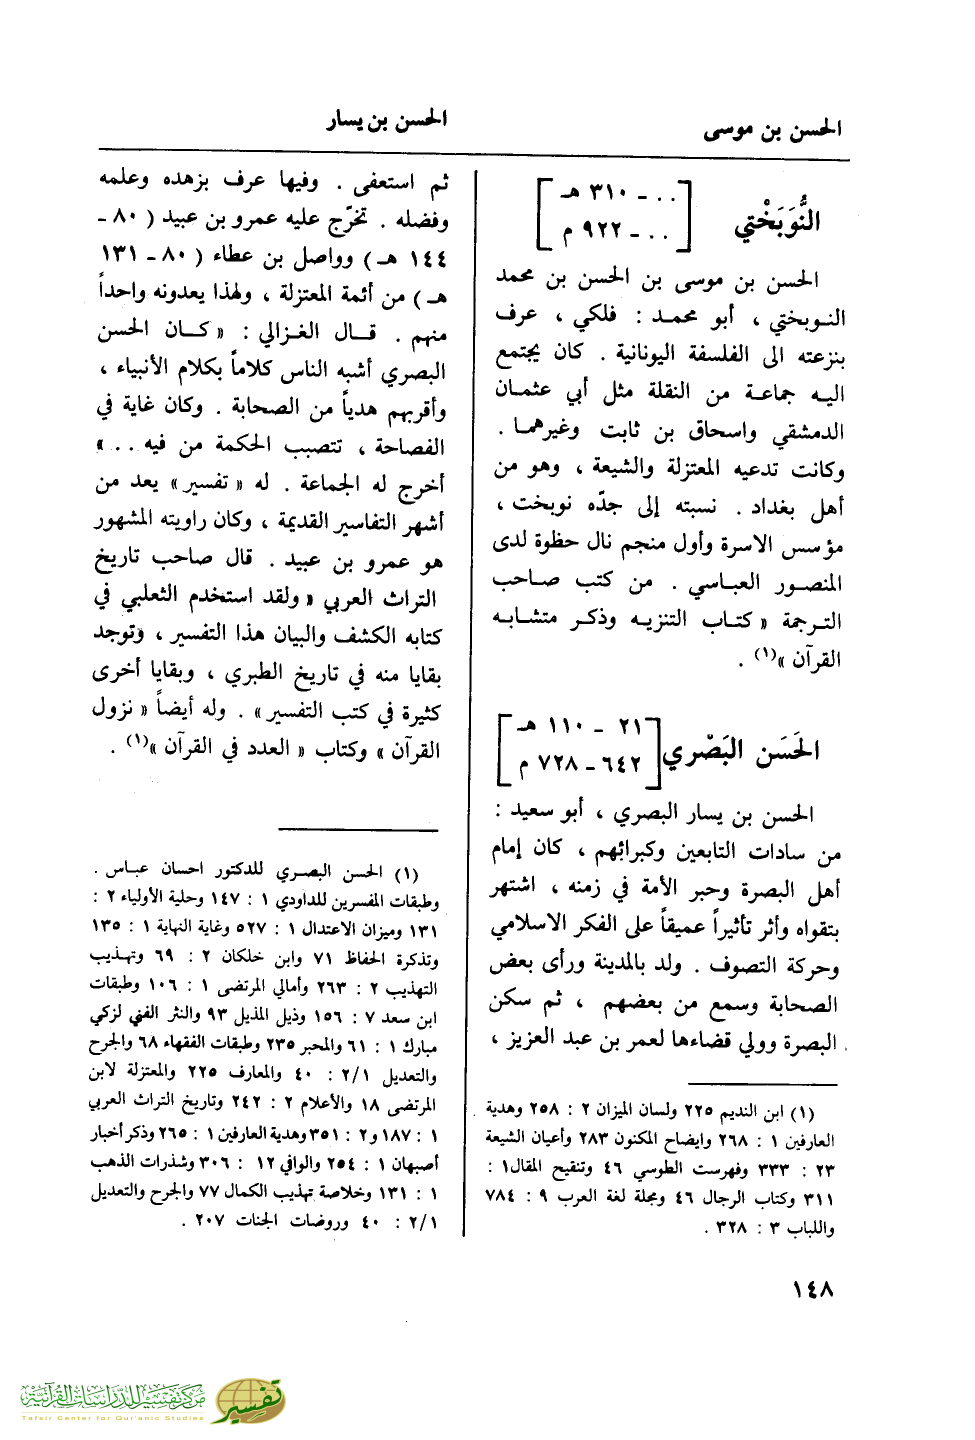 الحسن بن موسى
الحسن بن يسار
النُّوبَخْتي
.. ـ ٣١٠ هـ
.. ـ ٩٢٢ م
الحسن بن موسى بن الحسن بن محمد
النوبختي ، أبو محمد : فلكي ، عرف
بنزعته الى الفلسفة اليونانية . كان يجتمع
اليه جماعة من النقلة مثل أبي عثمان
الدمشقي واسحاق بن ثابت وغيرهما .
وكانت تدعيه المعتزلة والشيعة ، وهو من
أهل بغداد . نسبته إلى جدّه نوبخت ،
مؤسس الاسرة وأول منجم نال حظوة لدى
المنصور العباسي . من كتب صاحب
الترجمة « كتاب التنزيه وذكر متشابه
القرآن »(١) .
الحَسَن البَصْري
٢١ ـ ١١٠ هـ
٦٤٢ ـ ٧٢٨ م
الحسن بن يسار البصري ، أبو سعيد :
من سادات التابعين وكبرائهم ، كان إمام
أهل البصرة وحبر الأمة في زمنه ، اشتهر
بتقواه وأثر تأثيراً عميقاً على الفكر الاسلامي
وحركة التصوف . ولد بالمدينة ورأى بعض
الصحابة وسمع من بعضهم ، ثم سكن
البصرة وولي قضاءها لعمر بن عبد العزيز ،
(١) ابن النديم ٢٢٥ ولسان الميزان ٢ : ٢٥٨ وهدية
العارفين ١ : ٢٦٨ وايضاح المكنون ٢٨٣ وأعيان الشيعة
٢٣ : ٣٣٣ وفهرست الطوسي ٤٦ وتنقيح المقال١ :
٣١١ وكتاب الرجال ٤٦ ومجلة لغة العرب ٩ : ٧٨٤
واللباب ٣ : ٣٢٨ .
ثم استعفى . وفيها عرف بزهده وعلمه
وفضله . تخرّج عليه عمرو بن عبيد ( ٨٠ ـ
١٤٤ هـ ) وواصل بن عطاء ( ٨٠ ـ ١٣١
هـ ) من أئمة المعتزلة ، ولهذا يعدونه واحداً
منهم . قال الغزالي : « كان الحسن
البصري أشبه الناس كلاماً بكلام الأنبياء ،
وأقربهم هدياً من الصحابة . وكان غاية في
الفصاحة ، تتصبب الحكمة من فيه .. »
أخرج له الجماعة . له « تفسير » يعد من
أشهر التفاسير القديمة ، وكان راويته المشهور
هو عمرو بن عبيد . قال صاحب تاريخ
التراث العربي « ولقد استخدم الثعلبي في
كتابه الكشف والبيان هذا التفسير ، وتوجد
بقايا منه في تاريخ الطبري ، وبقايا أخرى
كثيرة في كتب التفسير» . وله أيضاً « نزول
القرآن » وكتاب « العدد في القرآن »(١) .
(١) الحسن البصري للدكتور احسان عباس .
وطبقات المفسرين للداودي ١ : ١٤٧ وحلية الأولياء ٢ :
١٣١ وميزان الاعتدال ١ : ٥٢٧ وغاية النهاية ١ : ١٣٥
وتذكرة الحفاظ ٧١ وابن خلكان ٢ : ٦٩ وتهذيب
التهذيب ٢ : ٢٦٣ وأمالي المرتضى ١ : ١٠٦ وطبقات
ابن سعد ٧ : ١٥٦ وذيل المذيل ٩٣ والنثر الفني لزكي
مبارك ١ : ٦١ والمحبر ٢٣٥ وطبقات الفقهاء ٦٨ والجرح
والتعديل ٢/١ : ٤٠ والمعارف ٢٢٥ والمعتزلة لابن
المرتضى ١٨ والأعلام ٢ : ٢٤٢ وتاريخ التراث العربي
١ : ١٨٧ و٢ : ٣٥١ وهدية العارفين ١ : ٢٦٥ وذكر أخبار
أصبهان ١ : ٢٥٤ والوافي ١٢ : ٣٠٦ وشذرات الذهب
١ : ١٣١ وخلاصة تهذيب الكمال ٧٧ والجرح والتعديل
٢/١ : ٤٠ وروضات الجنات ٢٠٧ .
١٤٨
مركز تفسير للدراسات القرآنية
Tafsir Center for Qur'anic Studies
تفسير